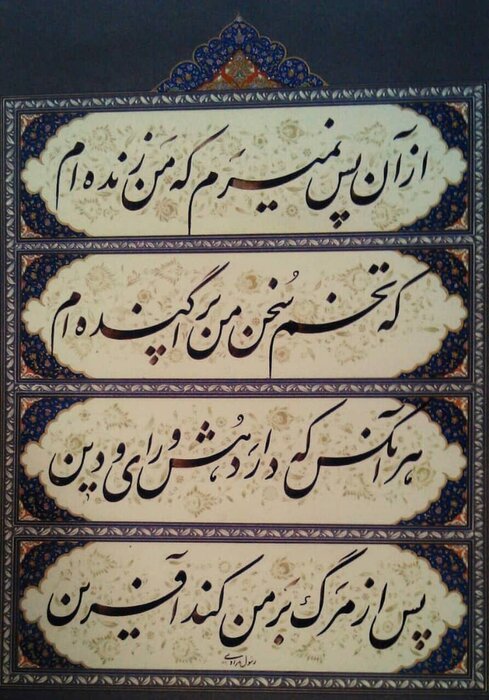 از آن پس نمیرم که من زنده ام
که تخم سخن من پراگنده ام
هر آنکس که دارد هش و رای و دین
پس از مرگ بر من کند آفرین
رسول مرادی